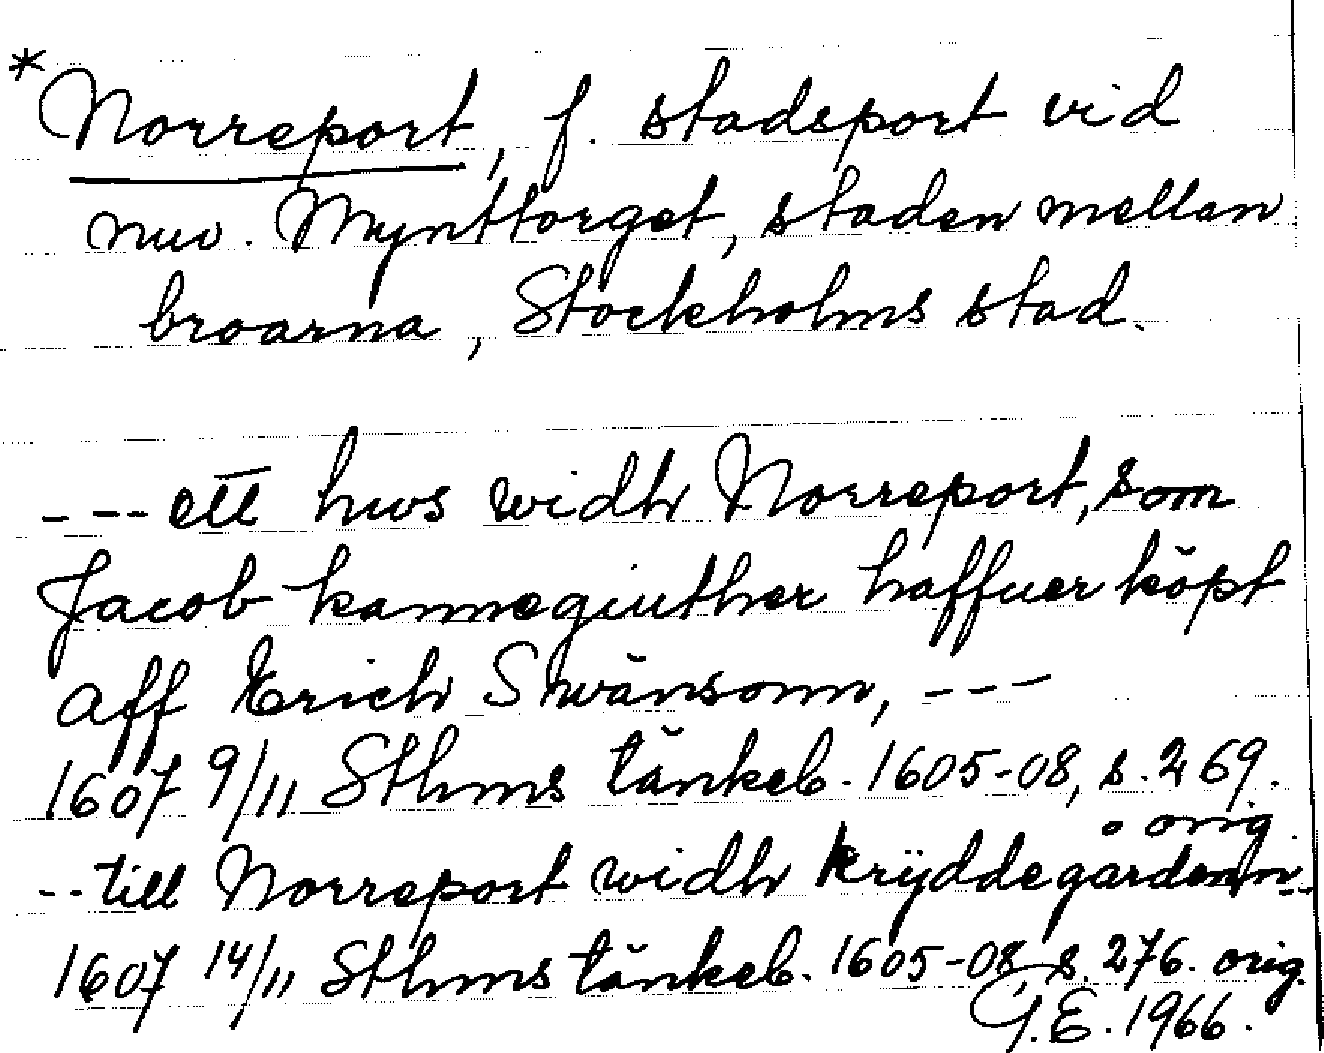 * Norreport, f. stadsport vid
nuv. Mynttorget, staden mellan
broarna, Stockholms stad.
--- ett hws widh Norreport, som
Jacob kannegiuther haffuer köpt
aff Erich Swänsonn, ---
1607 9/11 Sthms tänkeb. 1605-08, s. 269.
orig.
-- till Norreport widh krÿddegårdenn --
1607 14/11 Sthms tänkeb. 1605-08 s. 276. orig.
G.E. 1966.